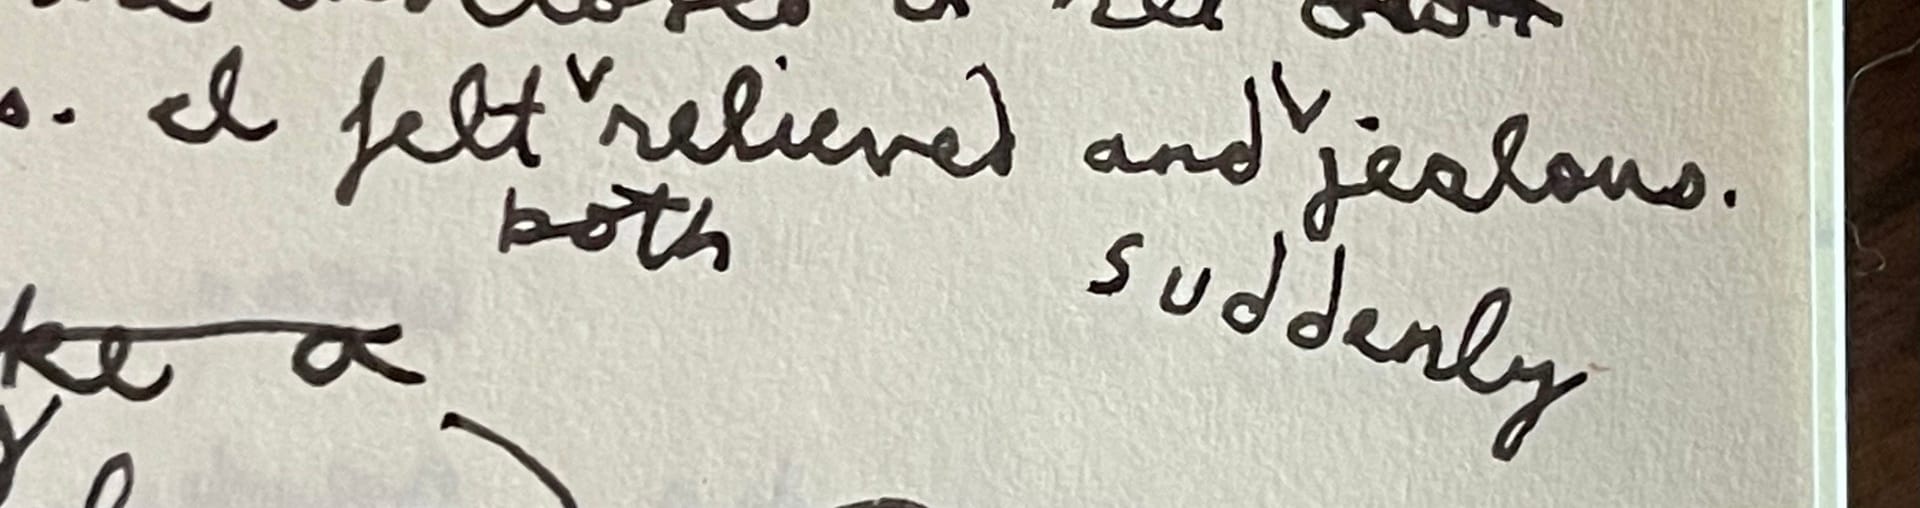 I felt relieved and jealous.
both suddenly
ke a